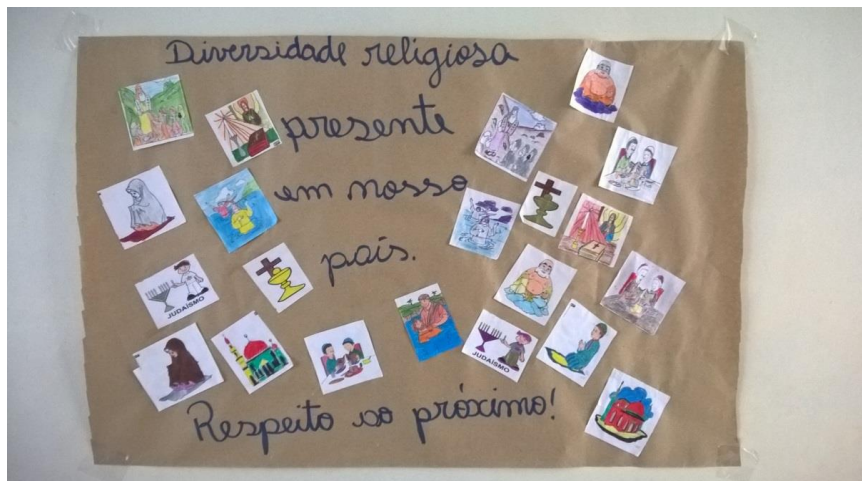 Diversidade religiosa
presente
em nosso
país.
JUDAÍSMO
JUDAÍSMO
Respeito ao próximo!